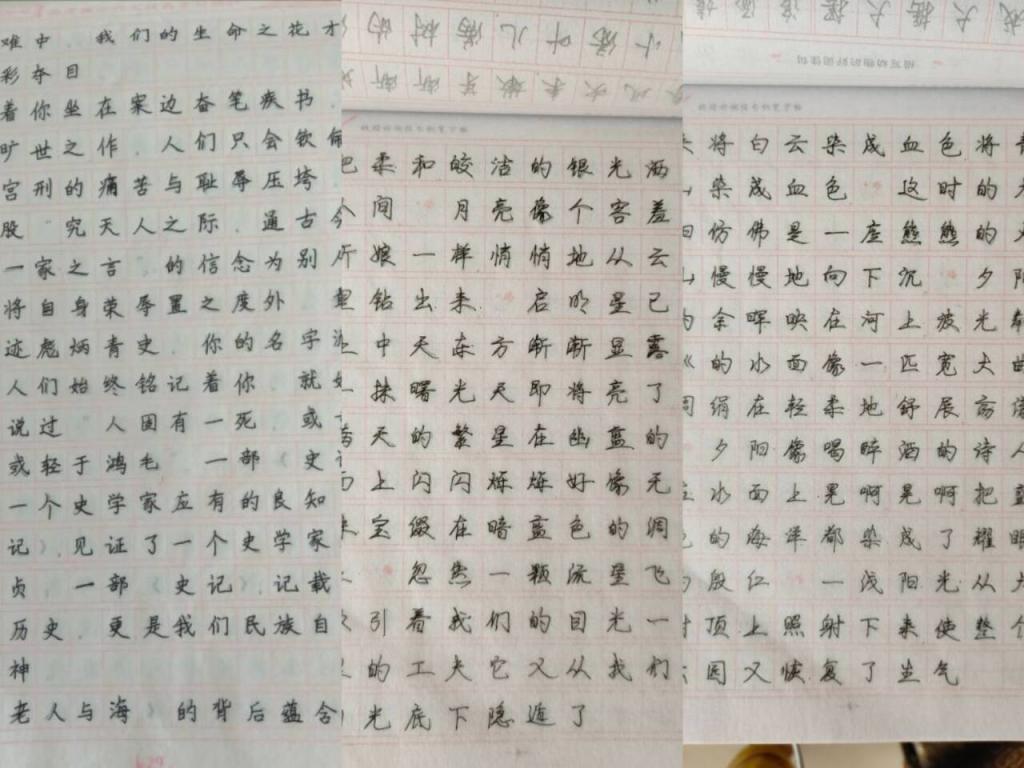 难中，我们的生命之花才
彩夺目
着你坐在案边奋笔疾书，
旷世之作，人们只会钦佩
宫刑的痛苦与耻辱压垮，
股“究天人之际，通古今
一家之言”的信念为别
将自身荣辱置之度外，
迹彪炳青史，你的名字
人们始终铭记着你，就如
说过“人固有一死，或
或轻于鸿毛”一部《史记
一个史学家应有的良知
记》，见证了一个史学家
贞，一部《史记》，记载
历史，更是我们民族自
神
老人与海》的背后蕴含
小落叶儿满树的
描写动物的好词佳句
把柔和皎洁的银光洒
人间 月亮像个害羞
娘一样悄悄地从云
里钻出来 启明星已
中天东方渐渐显露
抹曙光天即将亮了
天的繁星在幽蓝的
面上闪闪烁烁好像无
宝缀在暗蓝色的绸
忽然一颗流星飞
引着我们的目光一
的工夫它又从我们
光底下隐遁了
将白云染成血色将青
山染成血色 这时的太
仿佛是一座熊熊的火
山慢慢地向下沉 夕阳
的余晖映在河上波光
的水面像一匹宽大的
绢在轻柔地舒展
夕阳像喝醉酒的诗人
在水面上晃啊晃啊把蓝
色的海洋都染成了耀眼
的殷红 一浅阳光从大
树顶上照射下来使整个
公园又恢复了生气